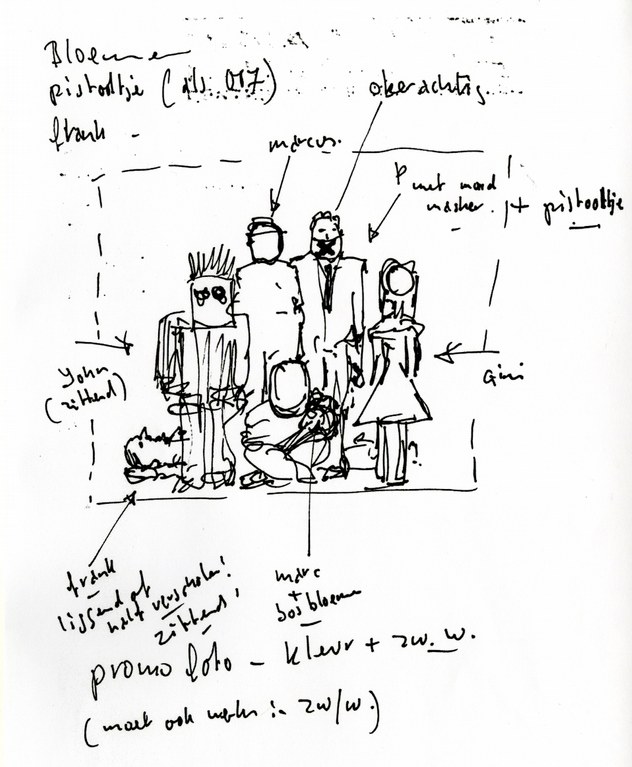 Bloemen
pistooltje (als 007)
frank -
oberachtig.
marcus.
P met mond
masker. + pistooltje
John
(zittend)
Gini
frank
liggend of
half verscholen!
zittend!
marc
+
bos bloemen
promo foto - kleur + zw. w.
(moet ook werken in zw/w.)